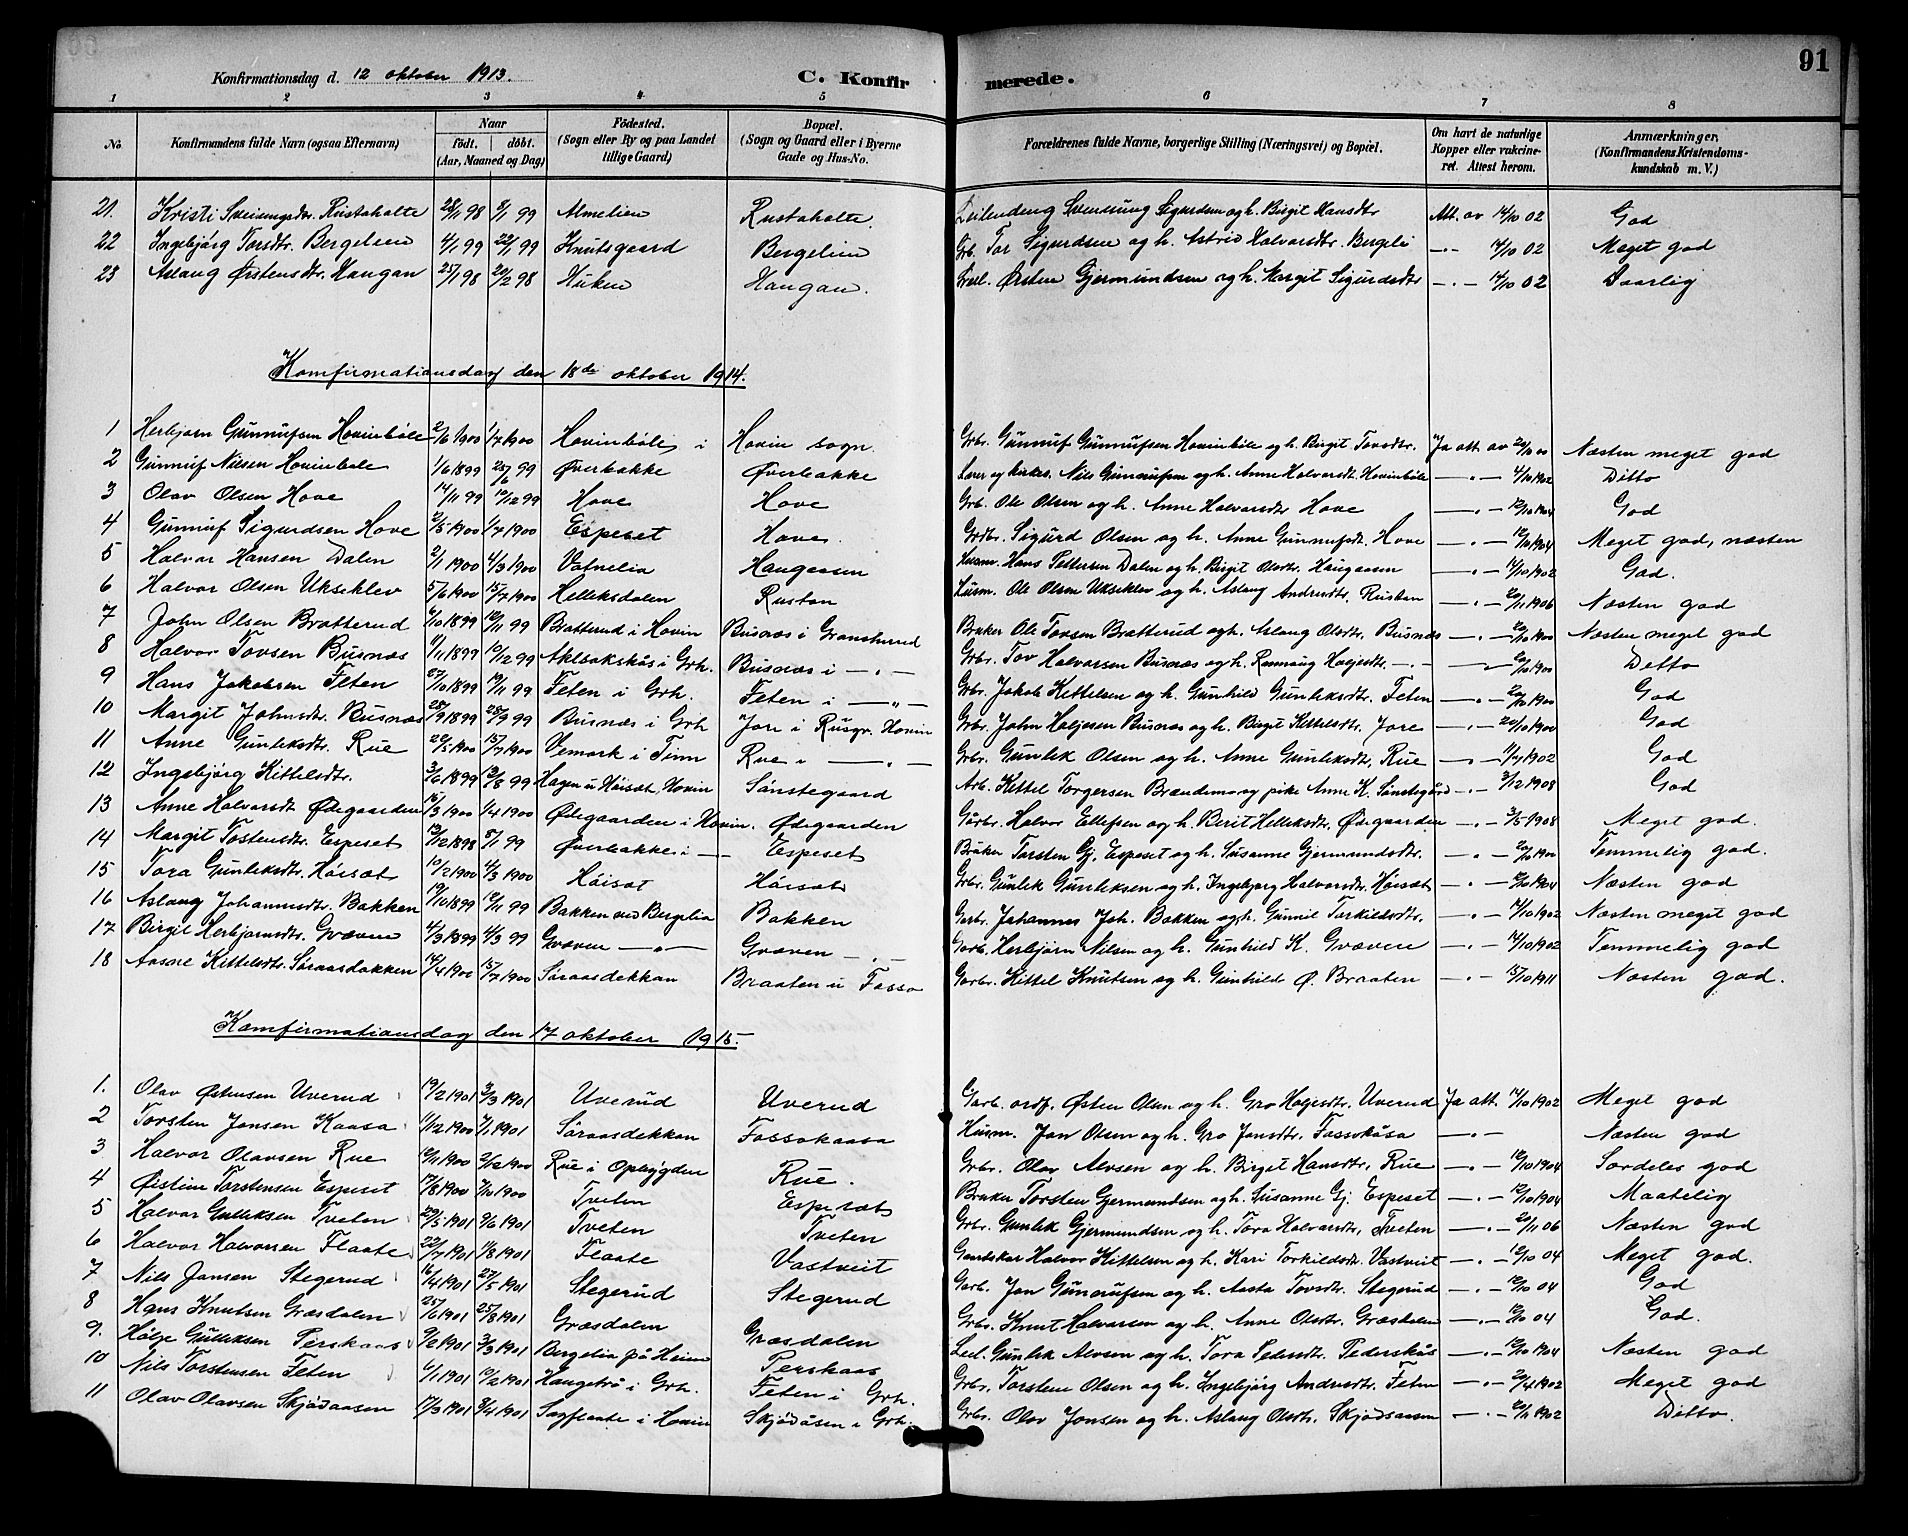 Konfirmationsdag d. 12 oktober 1913. C. Konfir merede. 91
1 2 3 4 5 6 7 8
No. Konfirmandens fulde Navn (ogsaa Efternavn) Naar født. døbt. (Aar, Maaned og Dag) Fødested. (Sogn eller By og paa Landet tillige Gaard) Bopæl. (Sogn og Gaard eller i Byerne Gade og Hus-No. Forældrenes fulde Navne, borgerlige Stilling (Næringsvei) og Bopæl. Om havt de naturlige Kopper eller vakcineret. Attest herom. Anmærkninger, (Konfirmandens Kristendomskundskab m. V.)
21. Kristi Sveinungsdtr. Rustaholte 28/11 98 8/1 99 Almelien Rustaholte Sigurdsen og h. Birgit Hansdtr Att. av 14/10 02 God
22 Ingebjørg Torsdtr. Bergelien 4/1 99 29/1 99 Knutsgaard Bergelien Grb. Tor Sigurdsen og h. Astrid Halvorsdtr. Bergeli —"— 14/10 02 Meget god
23 Aslaug Østensdtr. Haugan 25/1 98 20/2 98 Huken Haugan. Østen Gjermundsen og h. Margit Sigurdsdtr —"— 14/10 02 Daarlig
Komfirmationsdag den 18de oktober 1914.
1 Herbjørn Gunnufsen Hovinbøle 2/6 1900 1/7 1900 Hovinbøle i Hovin sogn. Grbr. Gunnuf Gunnufsen Hovinbøle og h. Birgit Tovsdtr. Ja att. av Næsten meget god
2 Gunnuf Nilsen Hovinbøle 1/6 1899 25/6 99 Øverbakke Øverbakke Nils Gunnufsen og h. Anne Halvorsdt. Hovinbøle —"— 4/10 1902 Ditto
3 Olav Olsen Hove 14/11 99 10/12 99 Hove Hove Grb. Ole Olsen og h. Anne Halvorsdtr Hove —"— 12/10 1904 God
4 Gunnuf Sigurdsen Hove 2/5 1900 1/7 1900 Espeset Hove. Grdbr. Sigurd Olsen og h. Anne Gunnufsdt. Hove —"— 12/10 1904 Meget god, næsten
5 Halvor Hansen Dalen 2/1 1900 4/3 1900 Vatnelia Haugaasen Husm. Hans Pettersen Dalen og h. Birgit Olsdtr. Haugaasen —"— 14/10 1902 God.
6 Halvor Olsen Ukseklev 5/6 1900 15/7 1900 Helleksdalen Rustan Husm. Ole Olsen Ukseklev og h. Aslaug Andersdtr. Rustan —"— 20/11 1906 Næsten god
7 John Olsen Bratterud 6/10 1899 12/11 99 Bratterud i Hovin Busnæs i Gransherred Bruker Ole Tovsen Bratterud og h. Aslaug Olsdtr. Busnæs —"— 20/10 1900 Næsten meget god
8 Halvor Tovsen Busnæs 4/11 1899 10/12 99 i Grh. Busnæs i —"— Grbr. Tov Halvorsen Busnæs og h. Rannaug Holjesdtr. —"— —"— 20/10 1900 Ditto
9 Hans Jakobsen Feten 27/10 1899 19/11 99 Feten i Grh. Feten i —"— Grbr. Jakob Kittelsen og h. Gunhild Gunleksdtr. Feten —"— 20/10 1900 God
10 Margit Johnsdtr. Busnæs 28/9 1899 28/9 99 Busnæs i Grh Jore i Rusgr. Hovin Grbr. John Holjesen Busnæs og h. Birgit Kittelsdtr. Jore —"— 20/10 1900 God
11 Anne Gunleksdtr. Rue 20/5 1900 15/7 1900 Vemork i Tinn Rue i —"— Grbr. Gunlek Olsen og h. Anne Gunleksdtr. Rue —"— 11/7 1902 God
12 Ingebjørg Kittelsdtr. 3/6 1899 13/8 99 Hagen u Høisæt Hovin Sønstegaard Arb. Kittel Torgersen Brændemo og pike Anne K. Sønstegård —"— 3/12 1908 God
13 Anne Halvorsdt Ødegaarden 16/3 1900 1/4 1900 Ødegaarden i Hovin. Ødegaarden Garbr. Halvor Ellefsen og h. Berit Helleksdtr. Ødegaarden —"— 3/5 1908 Meget god.
14 Margit Tostensdtr. Espeset 13/12 1898 8/1 99 Øverbakke i — Espeset Bruker Torsten Gj. Espeset og h. Susanne Gjermundsdtr. —"— 20/10 1900 Temmelig god.
15 Tora Gunleksdtr. Høisæt 10/2 1900 4/3 1900 Høisæt Høisæt Grbr. Gunlek Gunleksen og h. Ingebjørg Halvorsdtr. Høisæt —"— 12/10 1904 Næsten god
16 Aslaug Johannesdtr. Bakken 19/10 1899 12/11 99 Bakken ved Bergelia Bakken Garbr. Johannes Joh. Bakken og h. Gunnil Torkildsdtr. —"— 14/10 1902 Næsten meget god
17 Birgit Herbjørnsdtr. Græven 4/3 1899 4/3 99 Græven —"— Græven —"— Garbr. Herbjørn Nilsen og h. Gunhild K. Græven —"— 14/10 1902 Temmelig god
18 Aasne Kittelsdtr. Søraasdekken 16/4 1900 15/7 1900 Søraasdekkan Braaten u Fosso Garbr. Kittel Knutsen og h. Gunhild Ø. Braaten —"— 15/10 1911 Næsten god.
Komfirmationsdag den 17 oktober 1915.
1. Olav Østensen Uverud 19/2 1901 3/3 1901 Uverud Uverud Garb. ordf. Østen Olsen og h. Gro Holjesdtr. Uverud Ja att. 14/10 1902 Meget god
2 Torsten Jonsen Kaasa 11/12 1900 7/1 1901 Søraasdekkan Fossokaasa Husm. Jon Olsen og h. Gro Jonsdtr. Fossokåsa —"— Næsten god
3 Halvor Olavsen Rue 16/11 1900 2/12 1900 Rue i Opbygden Rue. Grbr. Olav Alvsen og h. Birgit Hansdtr. Rue —"— 12/10 1904 Særdeles god
4 Øistein Torstensen Espeset 17/8 1900 7/10 1900 Tveten Espesæt Bruker Torsten Gjermundsen og h. Susanne Gj. Espeset —"— 12/10 1904 Maatelig
5 Halvor Gulleksen Tveten 29/5 1901 9/6 1901 Tveten Tveten Grbr. Gunlek Gjermundsen og h. Tora Halvorsdtr. Tveten —"— 20/11 06 Næsten god
6 Halvor Halvorsen Flaate 22/7 1901 11/8 1901 Flaate Vastveit Halvor Kittelsen og h. Kari Torkildsdtr. Vastveit —"— 12/10 04 Meget god.
7 Nils Jonsen Stegerud 16/4 1901 27/5 1901 Stegerud Stegerud Garb. Jon Gunnufsen og h. Aasta Tovsdtr. Stegerud —"— 12/10 04 God
8 Hans Knutsen Græsdalen 25/6 1901 25/8 1901 Græsdalen Græsdalen Grbr. Knut Halvorsen og h. Anne Olsdtr. Græsdalen —"— 12/10 04 God.
9. Holje Gulleksen Perskaas 9/2 1901 3/3 1901 Bergelia på Heim Perskaas Leil. Gunlek Alvsen og h. Tora Pedersdtr. Pederskås —"— 12/10 1904 Næsten god
10 Nils Torstensen Feten 6/1 1901 10/2 1901 Haugetrø i Grh. Feten i Grh. Grbr. Torstein Olsen og h. Ingebjørg Andersdtr. Feten —"— 2/4 1902 Meget god
11 Olav Olavsen Skjødaasen 17/3 1901 8/4 1901 Sagflaate i Hovin Skjødåsen i Grh. Grbr. Olav Jonsen og h. Aslaug Olsdtr. Skjødsaasen —"— 2/11 1902 Ditto.